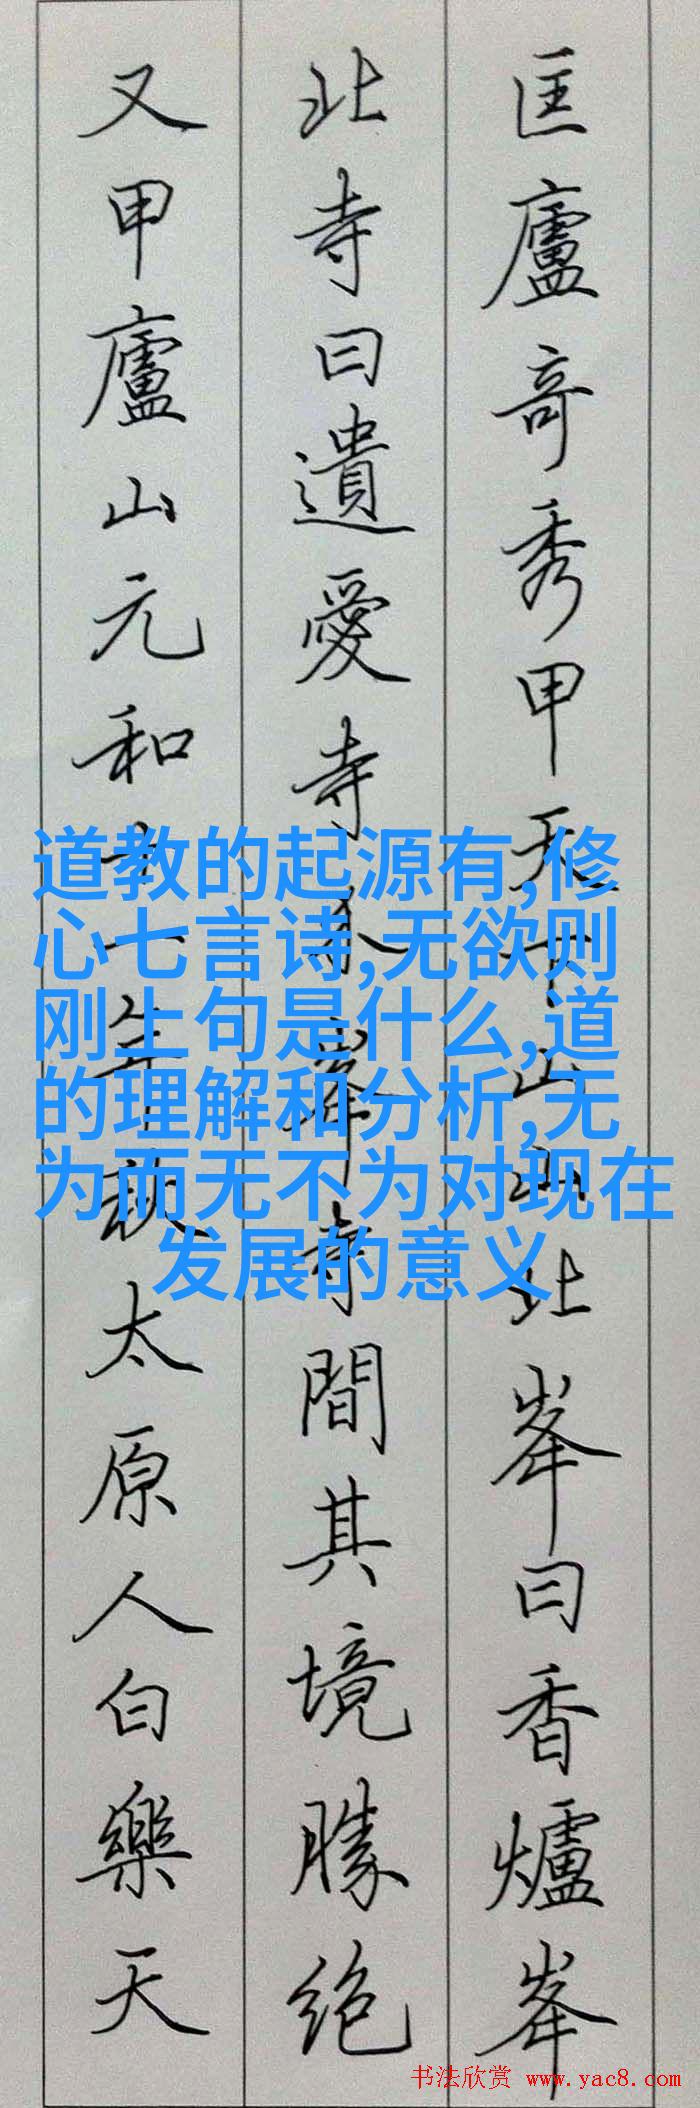 匡廬奇秀甲天下山山北峯曰香爐峯
北寺曰遺愛寺介峯寺間其境勝絶
又甲廬山元和十一年秋太原人白樂天
道教的起源有,修
心七言诗,无欲则
刚上句是什么,道
的理解和分析,无
为而无不为对现在
发展的意义
书法欣赏 www.yac8.com